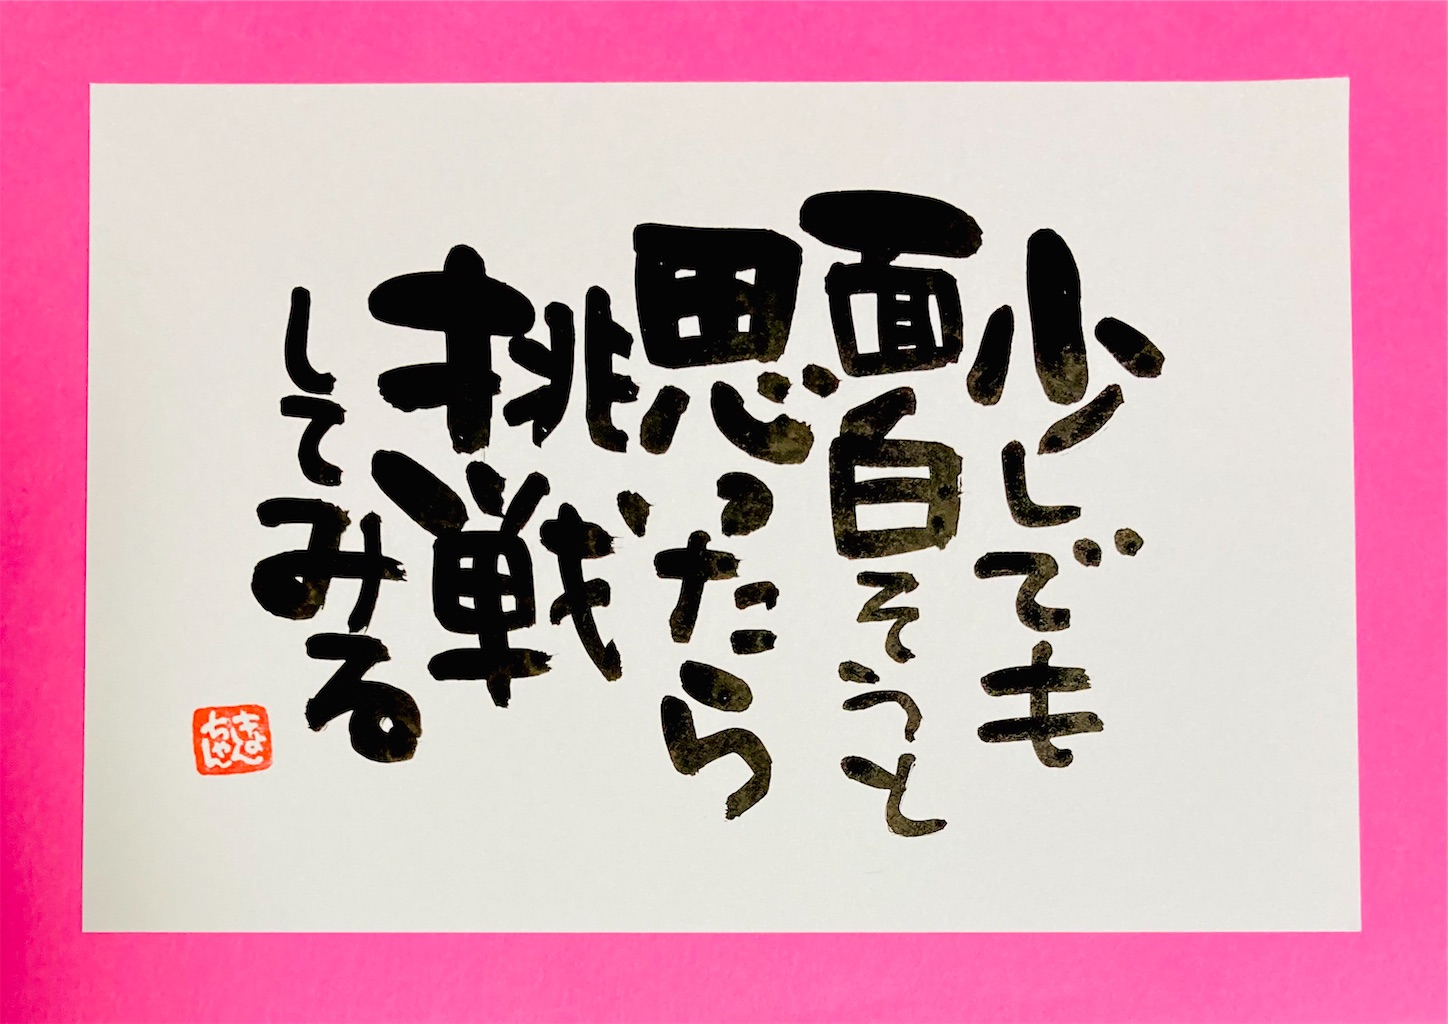 少しでも
面白そうと
思ったら
挑戦
してみる
きょん
ちゃん